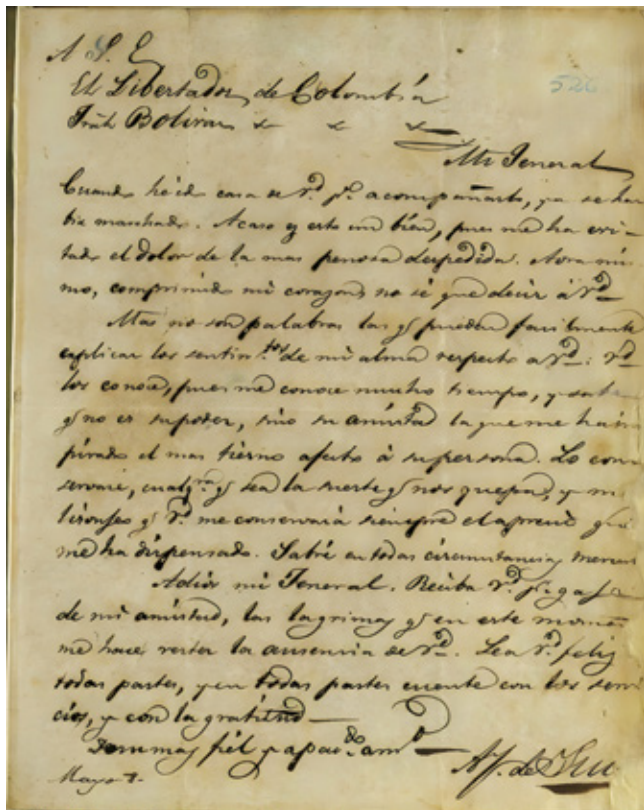 A S. E.
El Libertador de Colombia
Bolivar
526
Mi Jeneral
Cuando he ido casa de Vd. pa. acompañarlo, ya se ha
bia marchado. Acaso es esto un bien, pues me ha evi-
tado el dolor de la mas penosa despedida. Aora mis
mo, comprimido mi corazon, no sé que decir á Vd.
Mas no son palabras las qe pueden facilmente
explicar los sentim.tos de mi alma respecto a Vd.: Vd.
los conoce, pues me conoce mucho tiempo, y sabe
qe no es su poder, sino su amistad la que me ha ins
pirado el mas tierno afecto á su persona. Lo con
servaré, cualqra. qe sea la suerte qe nos quepa, y me
lisonjeo qe Vd. me conservará siempre el aprecio que
me ha dispensado. Sabré en todas circunstancias merecer
Adios mi Jeneral. Reciba Vd. pr. gaje
de mi amistad, las lagrimas qe en este momento
me hace verter la ausencia de Vd. Sea Vd. feliz
todas partes, y en todas partes cuente con los servi
cios, y con la gratitud
De su mas fiel y apasdo. amo.
Mayo
A. J. de Sucre